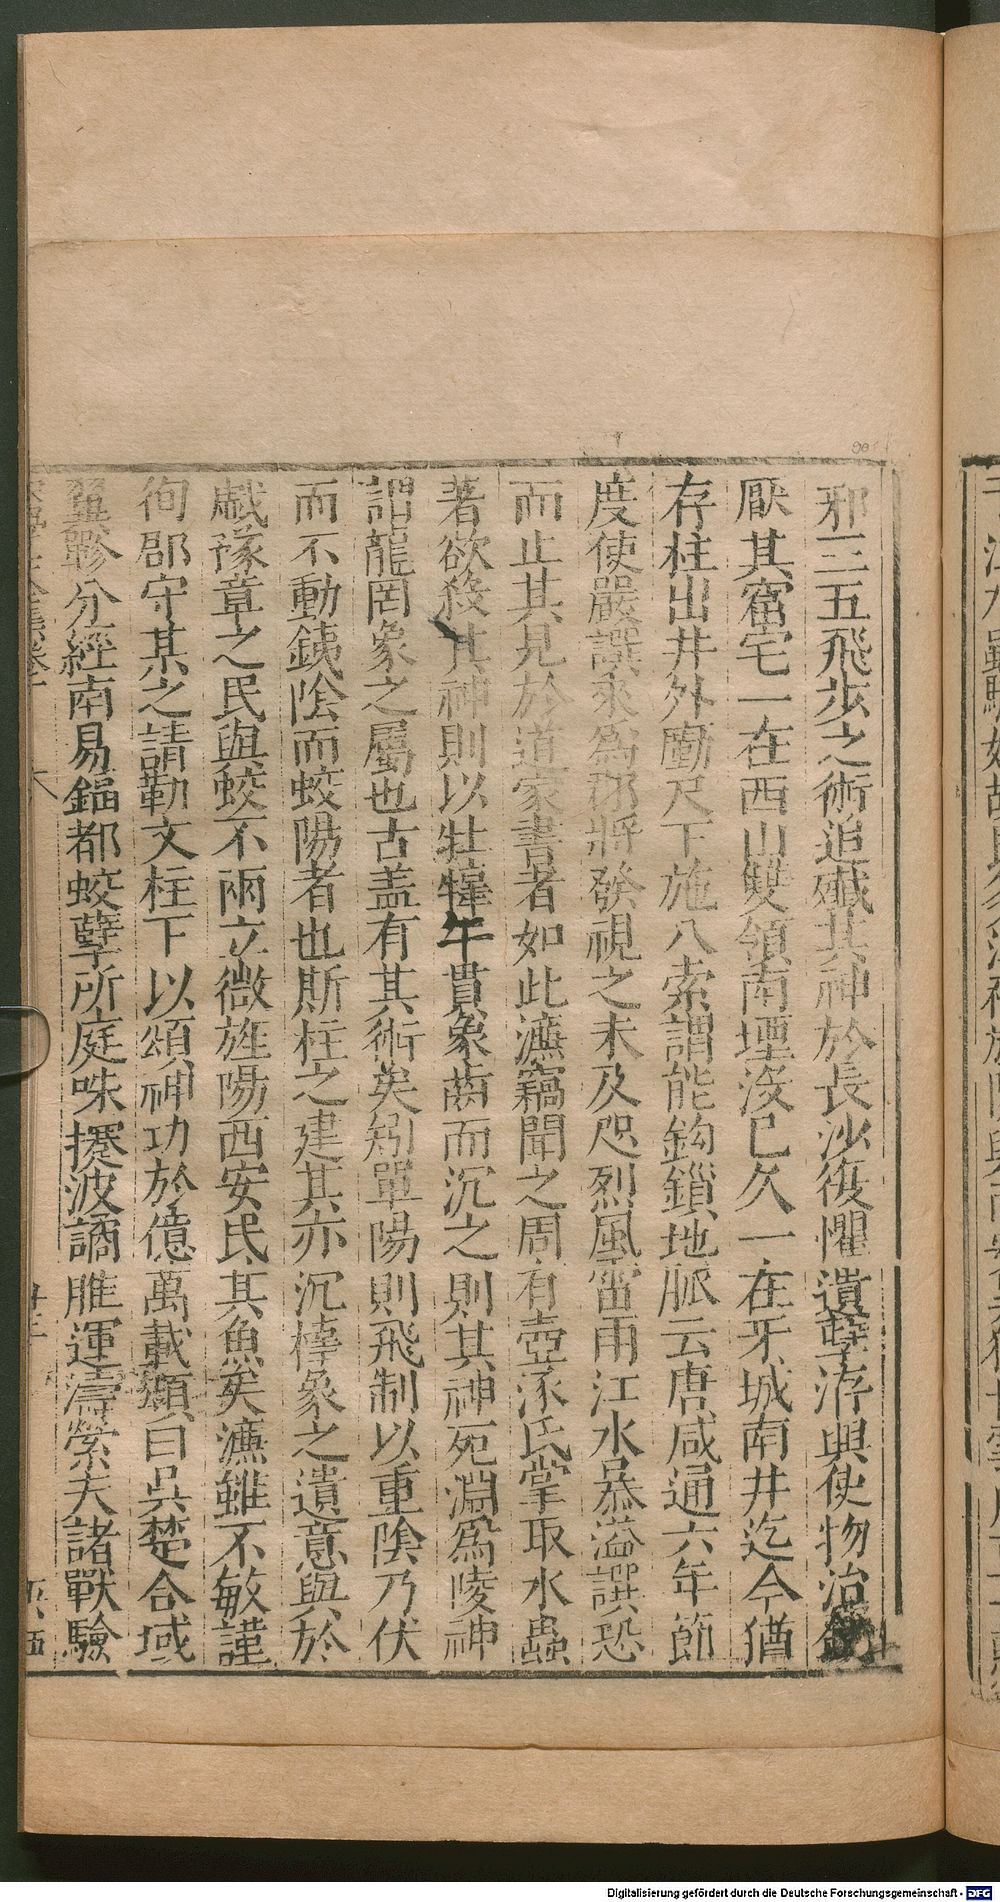 邪三五飛步之術追殱其神於長沙復懼遺孽洊興使物冶
厭其窟宅一在西山雙嶺南堙沒已久一在牙城南井迄今猶
存柱出井外㔉尺下施八索謂能鈎鎖地脈云唐咸通六年節
度使嚴譔來爲郡將發視之未及咫烈風雷雨江水暴溢譔恐
而止其見於道家書者如此濂竊聞之周有壺涿氏掌取水蟲
著欲殺其神則以牡橭午貫象齒而沉之則其神死淵爲陵神
謂龍罔象之屬也古盖有其術矣矧單陽則飛制以重陰乃伏
而不動銕陰而蛟陽者也斯柱之建其亦沉橭象之遺意與於
戲豫章之民與蛟不兩立微旌陽西安民其魚矣濂雖不敏謹
徇郡守某之請勒文柱下以頌神功於億萬載頌曰吳楚合域
翼軫分經南昜鎦都蛟孽所庭呋㩻波譎脽運濤縈夫諸獸驗
Digitalisierung gefördert durch die Deutsche Forschungsgemeinschaft - DFG